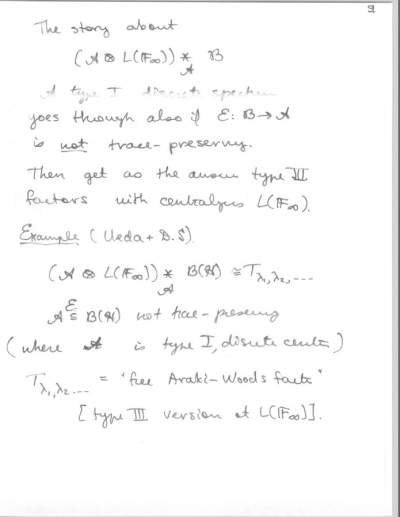 9
The story about
(A ⊗ L(F∞)) *_A B
A type I discrete spectrum
goes through also if E: B → A
is not trace-preserving.
Then get as the answer type III
factors with centralizers L(F∞).
Example (Ueda + D.S)
(A ⊗ L(F∞)) *_A B(H) ≅ T_λ1,λ2,....
A ⊆^E B(H) not trace-preserving
(where A is type I, discrete center)
T_λ1,λ2.... = "free Araki-Woods factor"
[type III version of L(F∞)].